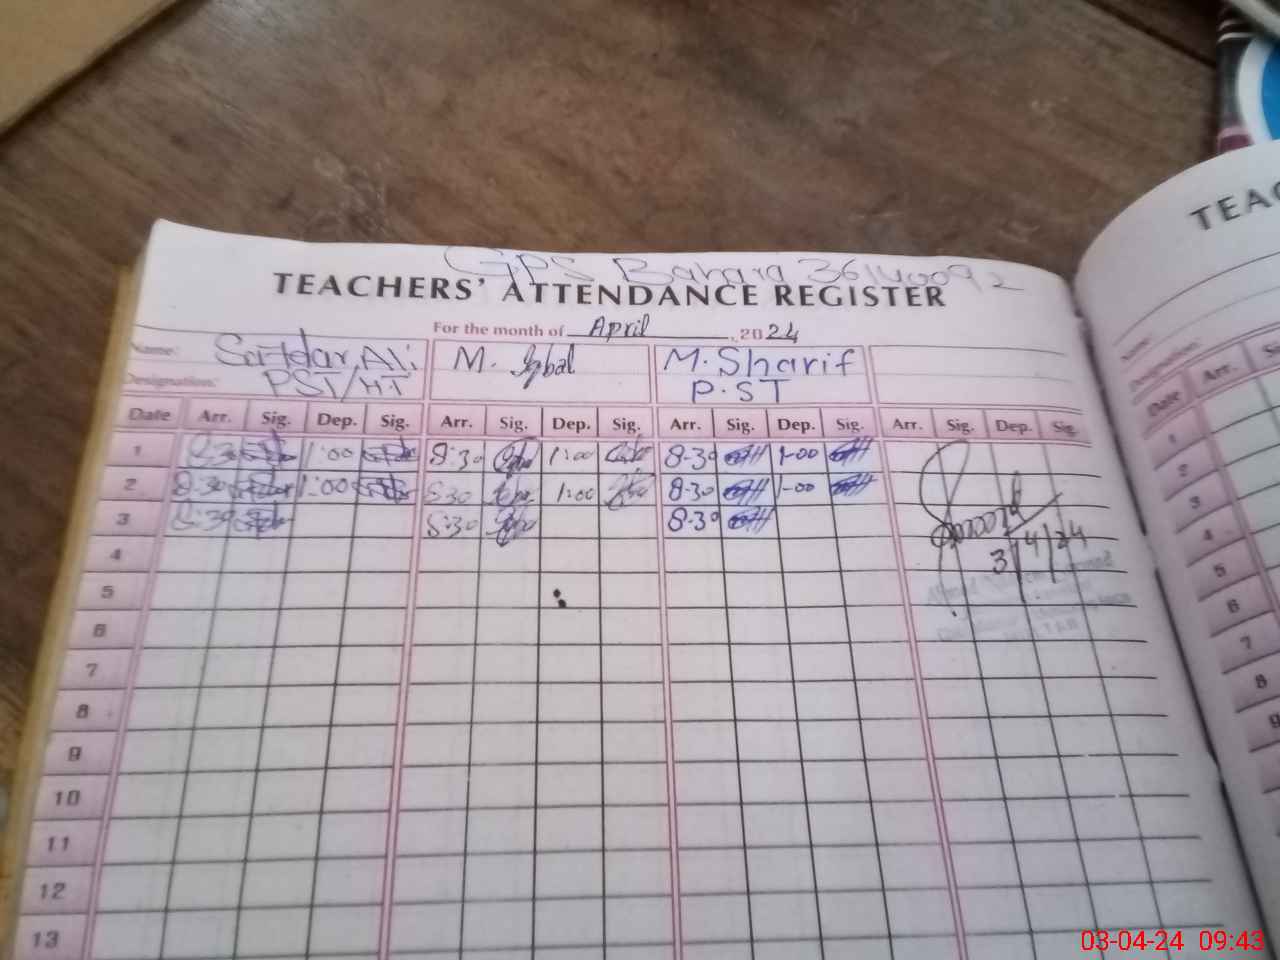 GPS Bahara 36140092
TEACHERS' ATTENDANCE REGISTER
For the month of April, 2024
Name: Sardar Ali M. Iqbal M. Sharif
Designation: PST/HT P.ST
Date Arr. Sig. Dep. Sig. Arr. Sig. Dep. Sig. Arr. Sig. Dep. Sig. Arr. Sig. Dep. Sig.
1 8:30 1:00 8:30 1:00 8-30 1-00
2 8:30 1:00 8:30 1:00 8-30 1-00
3 8:30 8:30 8-30
3/4/24
4
5
6
7
8
9
10
11
12
13
TEAC
Name:
Designation:
Date Arr.
1
2
3
4
5
6
7
8
9
03-04-24 09:43